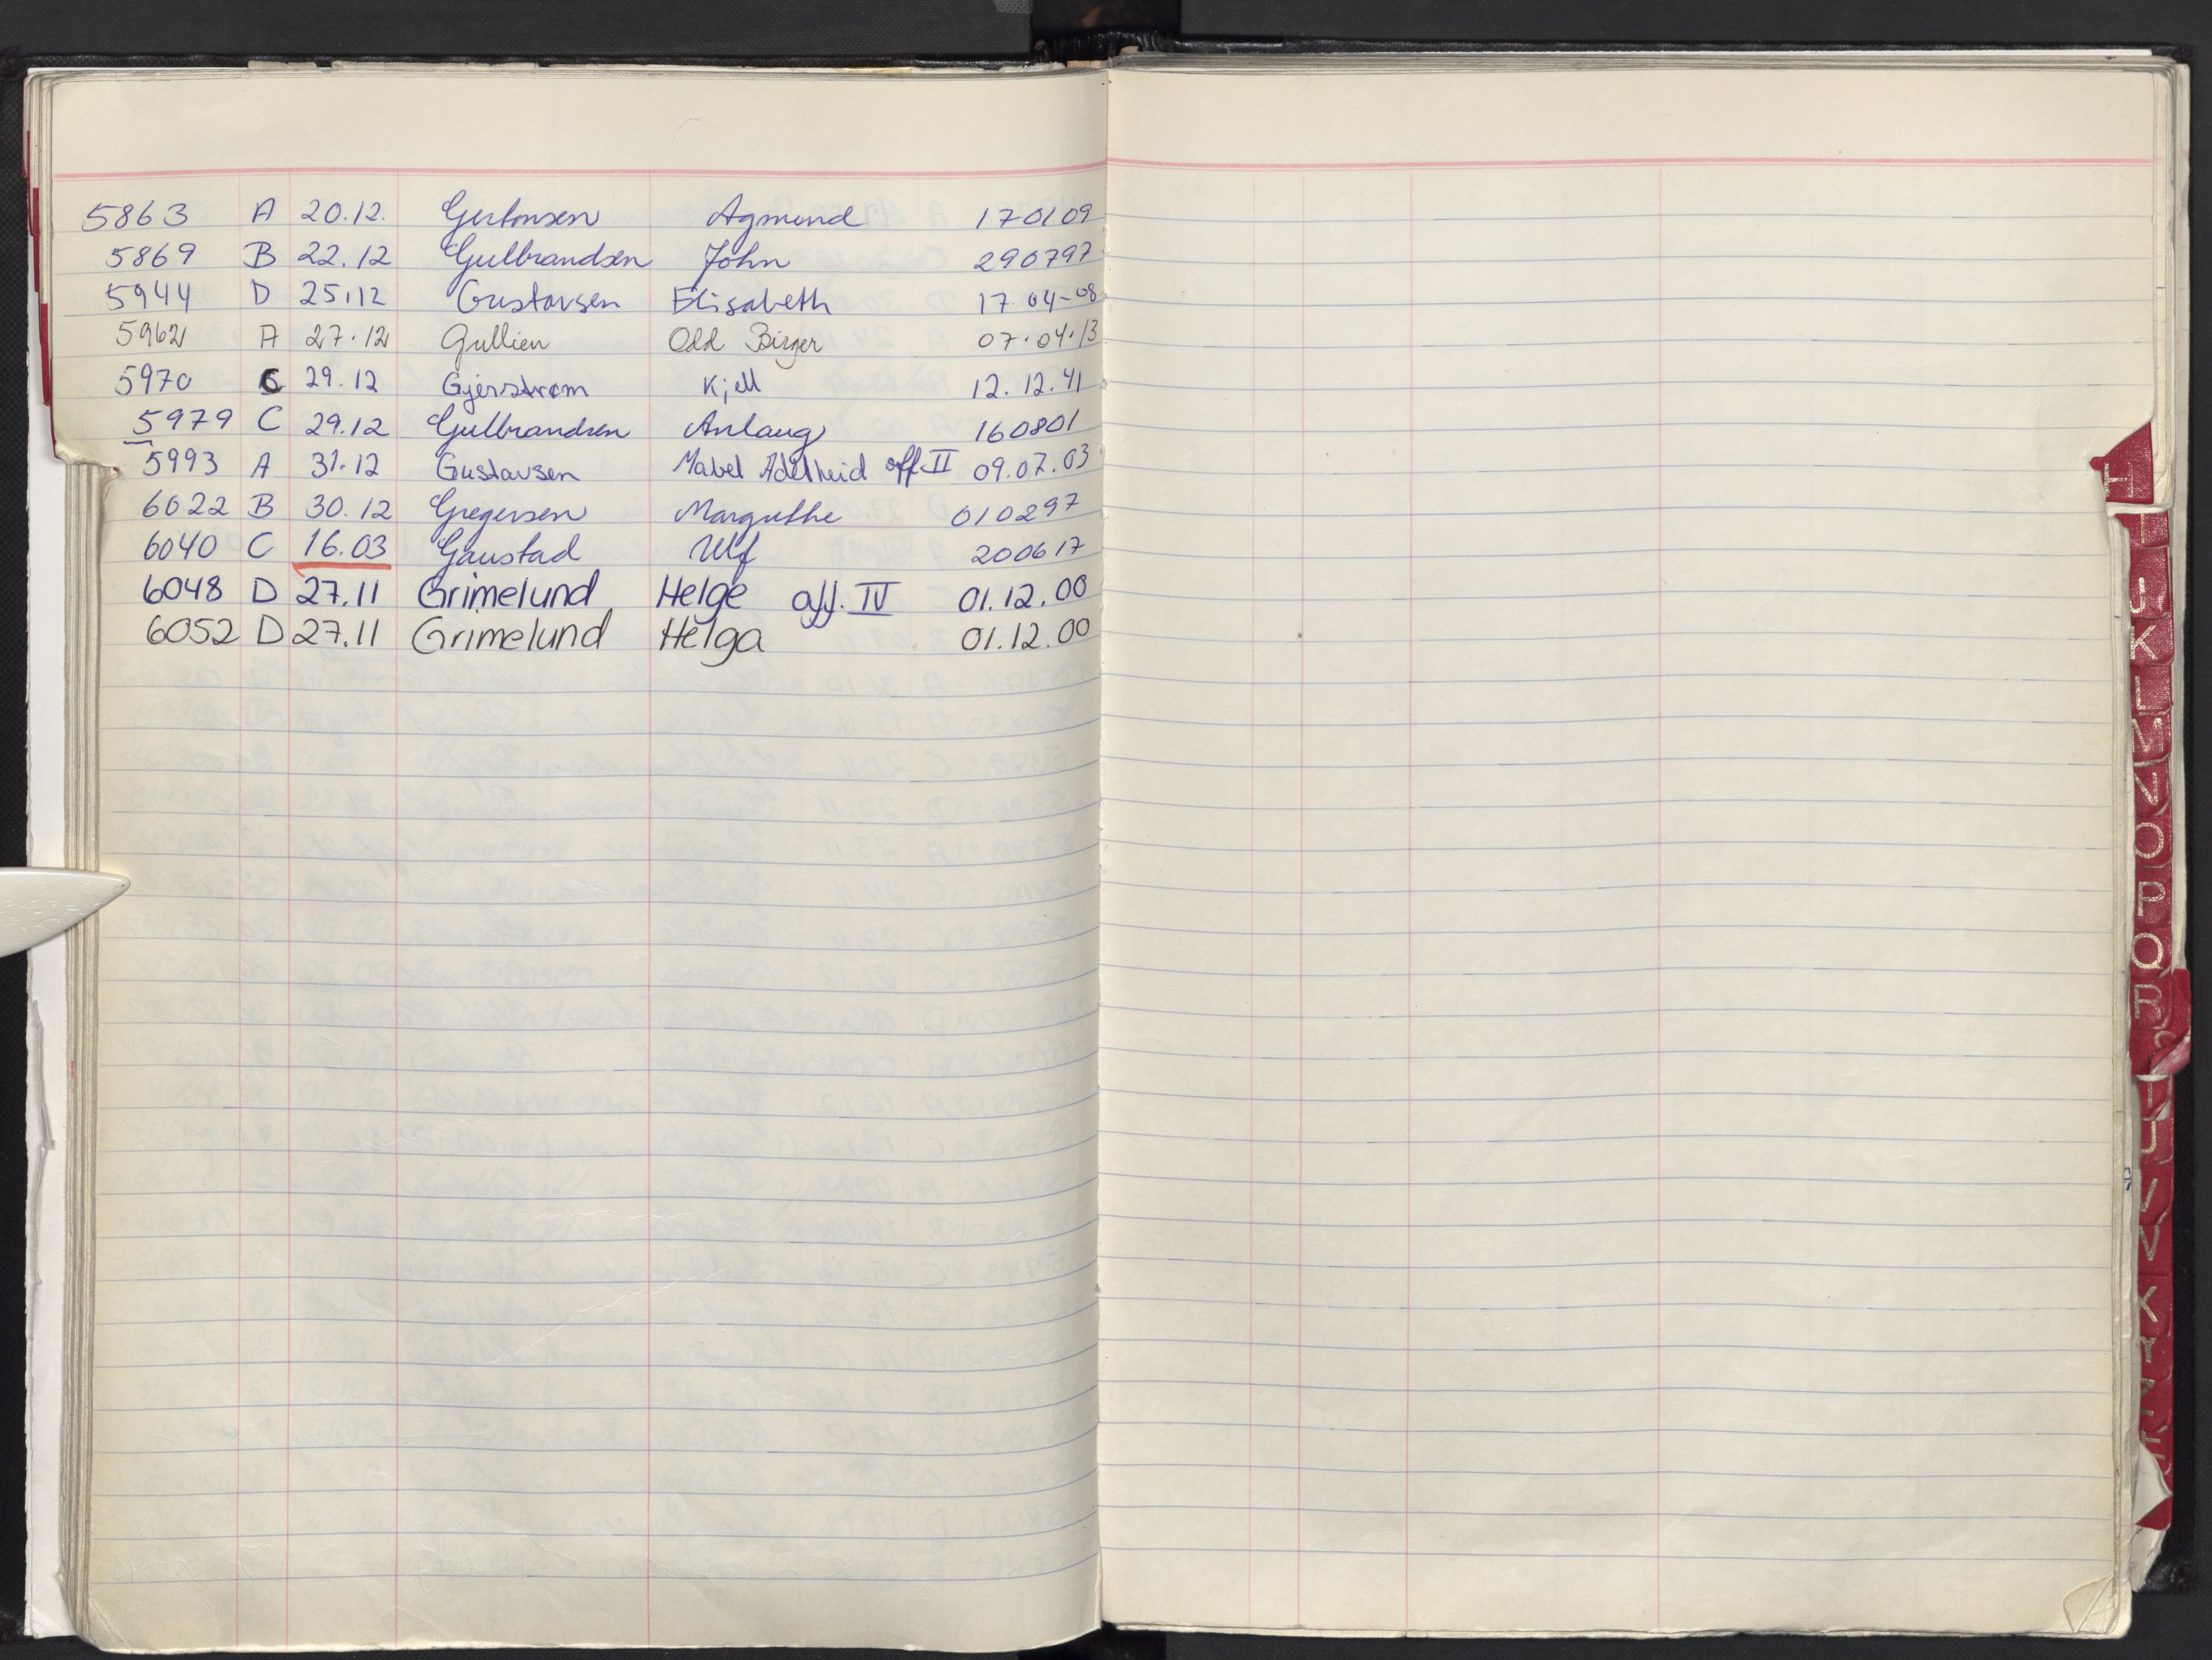 5863 A 20.12. Gustavsen Agmund 170109
5869 B 22.12 Gulbrandsen John 290797
5944 D 25.12 Gustavsen Elisabeth 17.04-08
5962 A 27.12 Gullien Odd Birger 07.04.13
5970 C 29.12 Gjerstrøm Kjell 12.12.41
5979 C 29.12 Gulbrandsen Anlaug 160801
5993 A 31.12 Gustavsen Mabel Adelheid off. II 09.07.03
6022 B 30.12 Gregersen Margrethe 010297
6040 C 16.03 Gaustad Ulf 200617
6048 D 27.11 Grimelund Helge off. IV 01.12.00
6052 D 27.11 Grimelund Helga 01.12.00
H
I
J
K
L
M
N
O
P
Q
R
S
T
U
V
W
X
Y